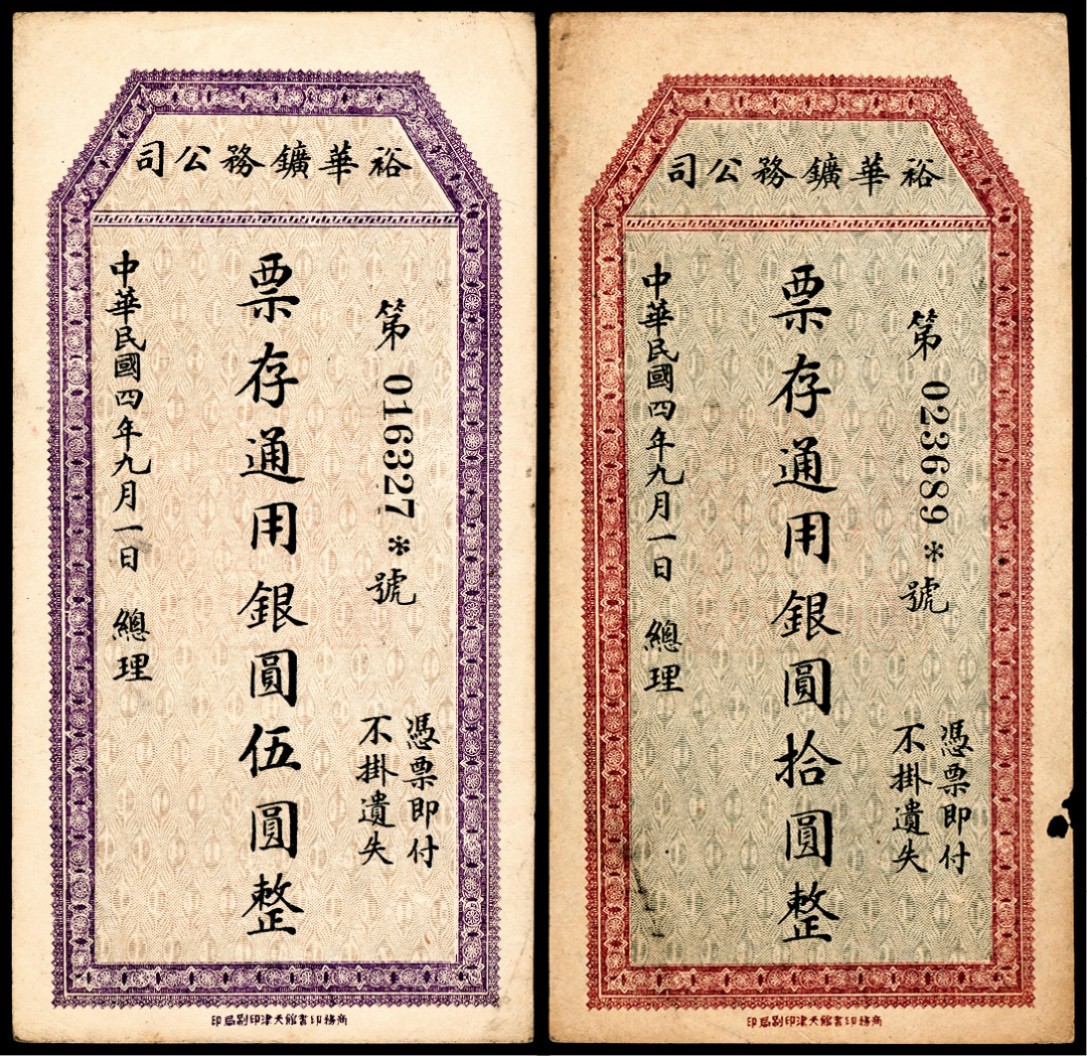 裕華鑛務公司
第 016327 * 號
憑票即付
不掛遺失
票存通用銀圓伍圓整
中華民國四年九月一日 總理
商務印書館天津印刷局印
裕華鑛務公司
第 023689 * 號
憑票即付
不掛遺失
票存通用銀圓拾圓整
中華民國四年九月一日 總理
商務印書館天津印刷局印